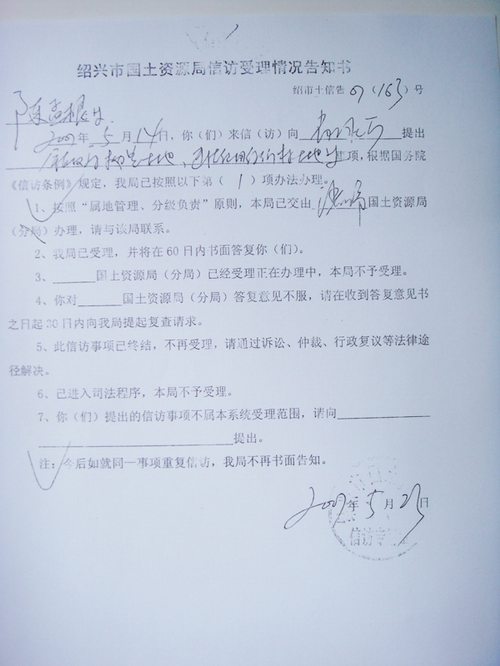 绍兴市国土资源局信访受理情况告知书
绍市土信告07(163)号
2007年5月14日,你(们)来信(访)向 提出
事项,根据国务院
《信访条例》规定,我局已按照以下第(1)项办法办理:
1、按照“属地管理、分级负责”原则,本局已交由 国土资源局
(分局)办理,请与该局联系。
2、我局已受理,并将在60日内书面答复你(们)。
3、______国土资源局(分局)已经受理正在办理中,本局不予受理。
4、你对______国土资源局(分局)答复意见不服,请在收到答复意见书
之日起30日内向我局提起复查请求。
5、此信访事项已终结,不再受理,请通过诉讼、仲裁、行政复议等法律途
径解决。
6、已进入司法程序,本局不予受理。
7、你(们)提出的信访事项不属本系统受理范围,请向____________
____________________提出。
注:今后如就同一事项重复信访,我局不再书面告知。
2007年5月23日
信访专